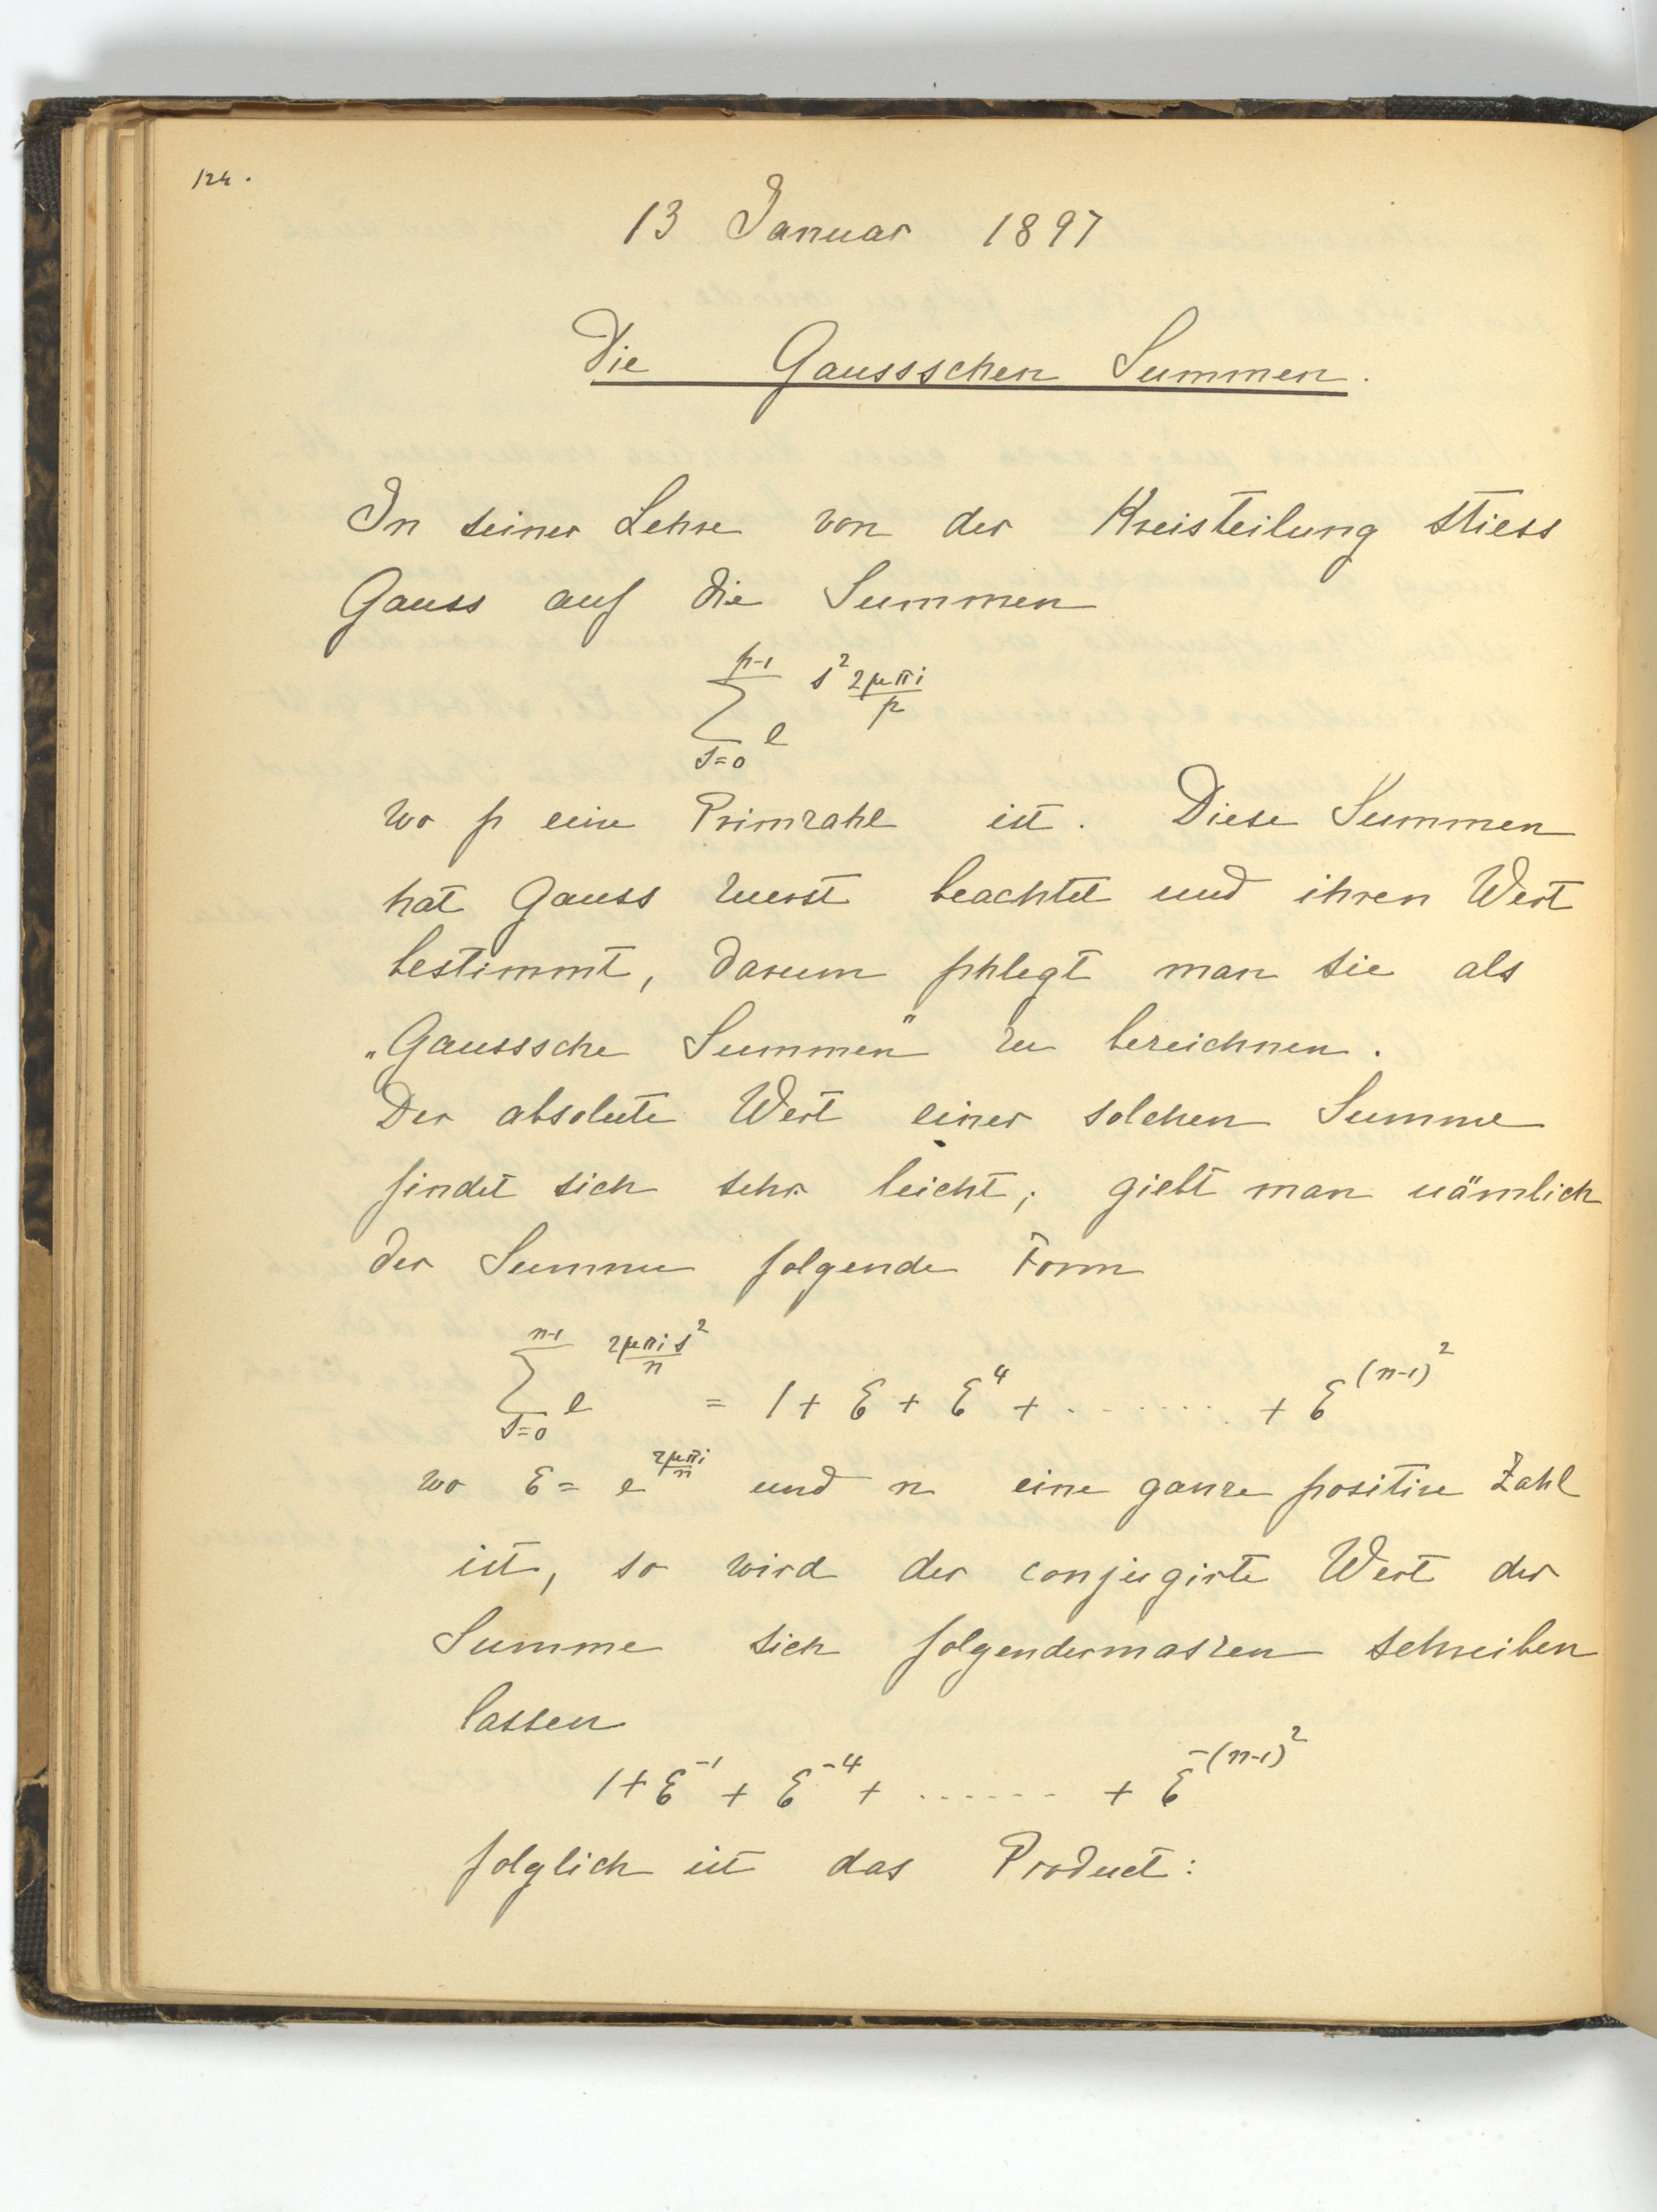 124.
13 Januar 1897
Die Gaussschen Summen.
In seiner Lehre von der Kreisteilung stiess
Gauss auf die Summen
\sum_{s=0}^{p-1} e^{s^2 \frac{2\mu\pi i}{p}}
wo p eine Primzahl ist. Diese Summen
hat Gauss zuerst beachtet und ihren Wert
bestimmt, darum phlegt man sie als
„Gausssche Summen" zu bezeichnen.
Der absolute Wert einer solchen Summe
findet sich sehr leicht; giebt man nämlich
der Summe folgende Form
\sum_{s=0}^{n-1} e^{\frac{2\mu\pi i s^2}{n}} = 1 + ε + ε^4 + ........ + ε^{(n-1)^2}
wo ε = e^{\frac{2\mu\pi i}{n}} und n eine ganze positive Zahl
ist, so wird der conjugirte Wert der
Summe sich folgendermaszen schreiben
lassen
1 + ε^{-1} + ε^{-4} + ....... + ε^{-(n-1)^2}
folglich ist das Product: